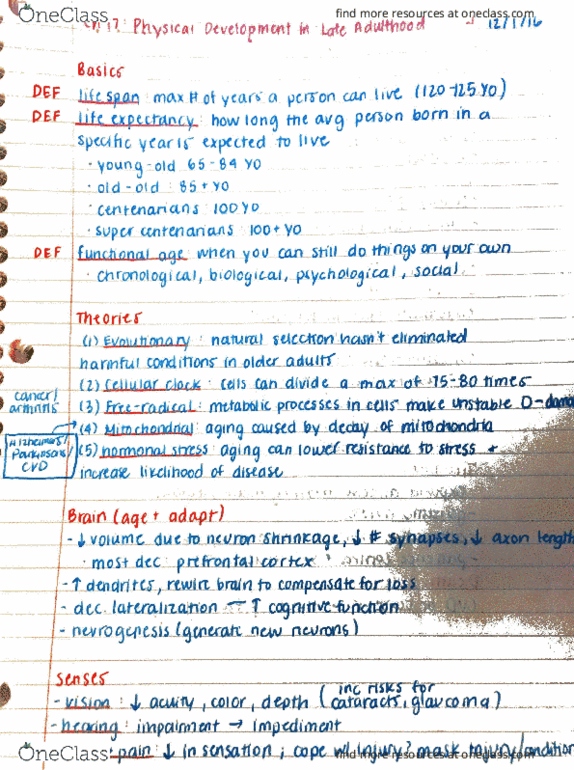 OneClass
find more resources at oneclass.com
Ch 17 Physical Development in Late Adulthood 12/1/16
Basics
DEF life span: max # of years a person can live (120-125 YO)
DEF life expectancy: how long the avg person born in a
specific year is expected to live
· young-old 65-84 YO
· old-old: 85+ YO
· centenarians: 100 YO
· super centenarians: 100+ YO
DEF functional age when you can still do things on your own
· chronological, biological, psychological, social
Theories
(1) Evolutionary: natural selection hasn't eliminated
harmful conditions in older adults
(2) Cellular clock: cells can divide a max of 75-80 times
cancer/
arthritis
(3) Free-radical: metabolic processes in cells make unstable O-dama
(4) Mitochondrial: aging caused by decay of mitochondria
Alzheimers/
Parkinsons/
CVD
(5) hormonal stress: aging can lower resistance to stress +
increase likelihood of disease
Brain (age + adapt)
- ↓ volume due to neuron shrinkage, ↓ # synapses, ↓ axon length
· most dec. prefrontal cortex
- ↑ dendrites, rewire brain to compensate for loss
- dec. lateralization — ↑ cognitive function
- neurogenesis (generate new neurons)
Senses
- vision: ↓ acuity, color, depth (inc risks for
cataracts, glaucoma)
- hearing: impairment → impediment
OneClass
pain: ↓ in sensation; cope w/ injury? mask injury/condition
find more resources at oneclass.com